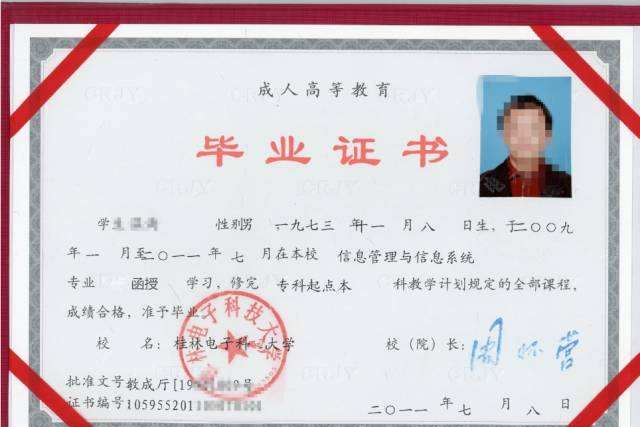 成人高等教育
毕业证书
学生 性别男 一九七三 年十一 月 八 日生, 于二〇〇九
年 一 月至二〇一一 年 七 月在本校 信息管理与信息系统
专业 函授 学习, 修完 专科起点本 科教学计划规定的全部课程,
成绩合格, 准予毕业
校 名: 桂林电子科 大学
校 (院) 长: 周怀营
林电子科技大学
批准文号教成厅[19 9号
证书编号105955201
二〇一一 年 七 月 八 日